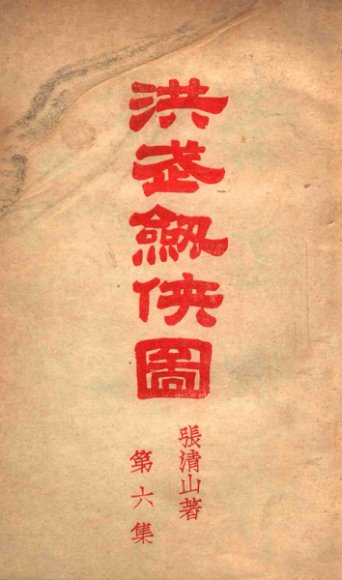 洪武劍俠圖
張清山著
第六集